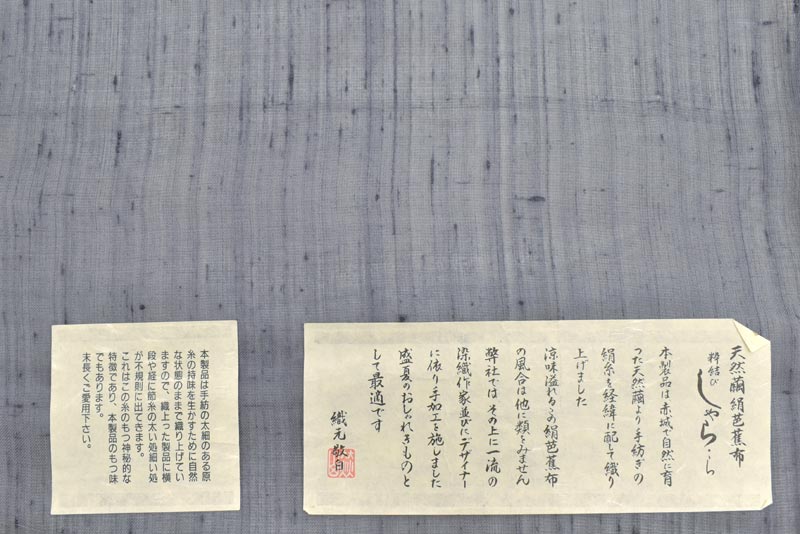 天然繭絹芭蕉布
粋結び
しゃらら
本製品は赤城で自然に育
った天然繭より手紡ぎの
絹糸を経緯に配して織り
上げました
涼味溢れるこの絹芭蕉布
の風合は他に類をみません
弊社では その上に一流の
染織作家並びにデザイナー
に依り手加工を施しました
盛夏のおしゃれきものと
して最適です
織元 敬白
本製品は手紡の太細のある原
糸の持味を生かすために自然
な状態のままで織り上げてい
ますので、織上った製品に横
段や経に節糸の太い処細い処
が不規則に出てきます。
これはこの糸のもつ神秘的な
特徴であり、本製品のもつ味
でもあります。
末長くご愛用下さい。